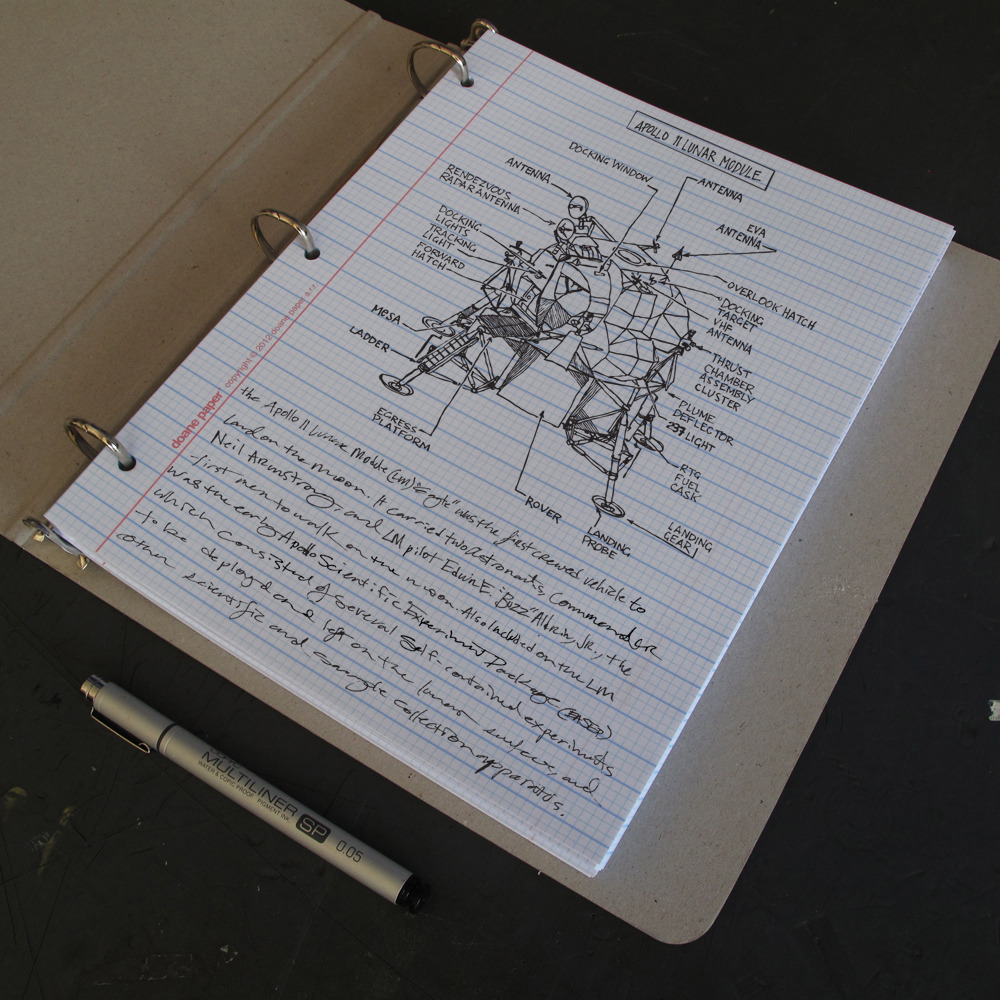 APOLLO 11 LUNAR MODULE
DOCKING WINDOW
ANTENNA
ANTENNA
RENDEZVOUS
RADAR ANTENNA
EVA
ANTENNA
DOCKING
LIGHTS
TRACKING
LIGHT
FORWARD
HATCH
OVERLOOK HATCH
DOCKING
TARGET
VHF
ANTENNA
MESA
LADDER
THRUST
CHAMBER
ASSEMBLY
CLUSTER
PLUME
DEFLECTOR
LIGHT
EGRESS
PLATFORM
RTG
FUEL
CASK
ROVER
LANDING
PROBE
LANDING
GEAR
doane paper copyright © 2012 doane paper s.r.r
the Apollo 11 Lunar Module (LM) "Eagle" was the first crewed vehicle to
land on the moon. It carried two astronauts, Commander
Neil Armstrong, and LM pilot Edwin E. "Buzz" Aldrin, Jr., the
first men to walk on the moon. Also included on the LM
was the early Apollo Scientific Experiment Package (EASEP)
which consisted of several self-contained experiments
to be deployd and left on the lunar surface, and
other scientific and sample collection apparatus.
MULTILINER SP 0.05
WATER & COPIC PROOF PIGMENT INK